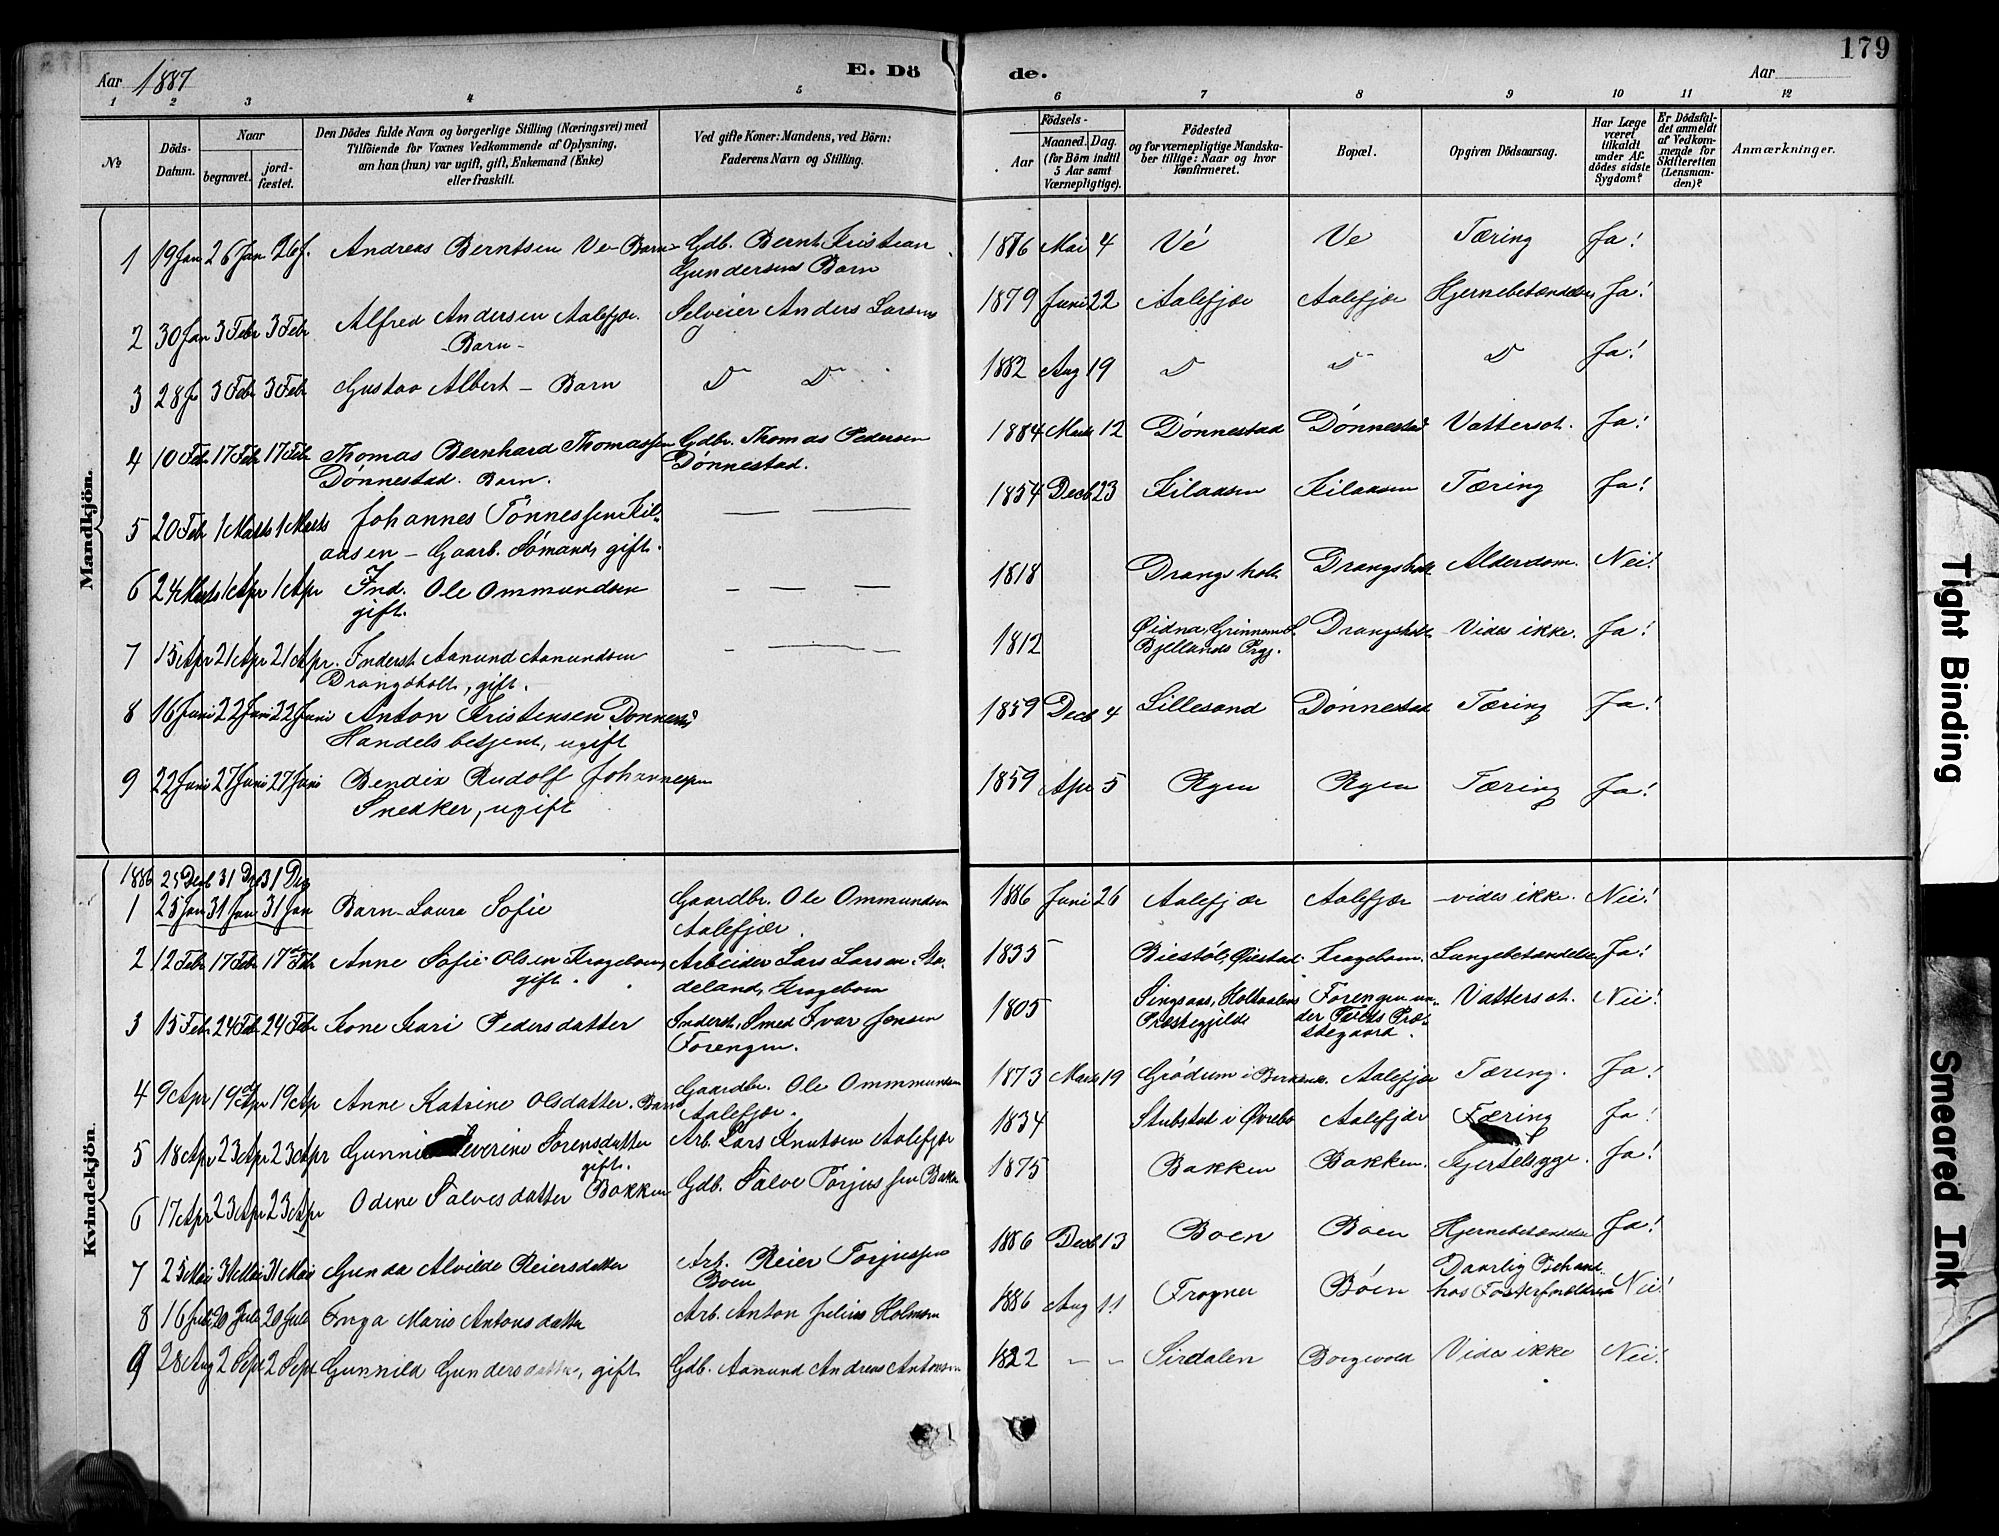 179
Aar 1887
E. Dö
de.
Aar
1 2 3 4 5 6 7 8 9 10 11 12
No
Döds-Datum.
Naar
begravet.
jord-fæstet.
Den Dödes fulde Navn og borgerlige Stilling (Næringsvei) med
Tilföiende for Voxnes Vedkommende af Oplysning,
om han (hun) var ugift, gift, Enkemand (Enke)
eller fraskilt.
Ved gifte Koner: Mandens, ved Börn:
Faderens Navn og Stilling.
Födsels-
Aar
Maaned. Dag.
(for Börn indtil
5 Aar samt
Værnepligtige).
Födested
og for værnepligtige Mandska-
ber tillige: Naar og hvor
konfirmeret.
Bopæl.
Opgiven Dödsaarsag.
Har Læge
været
tilkaldt
under Af-
dödes sidste
Sygdom?
Er Dödsfal-
det anmeldt
af Vedkom-
mende for
Skifteretten
(Lensman-
den)?
Anmærkninger.
Mandkjön.
1 19 Jan 26 Jan 26 J. Andreas Berntsen Ve - Barn - Gdb. Bernt Kristian 1876 Mai 4 Vé Ve Tæring Ja!
Gundersens Barn
2 30 Jan 3 Febr 3 Febr Alfred Andersen Aalefjær. Selveier Anders Larsens 1879 Juni 22 Aalefjær Aalefjær Hjernebetændelse Ja!
- Barn -
3 28 Ja 3 Febr 3 Febr Gustav Albert - Barn D D 1882 Aug 19 D D D Ja!
4 10 Feb 17 Febr 17 Febr Thomas Bernhard Thomassen Gdbr. Thomas Pedersen 1884 Marts 12 Dönnestad Dönnestad Vattersot. Ja!
Dönnestad. Barn. Dönnestad.
5 20 Febr 1 Marts 1 Marts Johannes Tönnessen Kil- — — 1854 Decb 23 Kilaasen Kilaasen Tæring Ja!
aasen - Gaarb. Sömand, gift.
6 24 Marts 1 Apr 1 Apr Ind. Ole Ommundsen — — — 1818 Drangsholt Drangsholt Alderdom. Nei!
gift.
7 15 Apr 21 Apr 21 Apr. Inderst Aanund Aanundsen — — — 1812 Øidna, Grinnem S. Drangsholt Vides ikke. Ja!
Drangsholt, gift. Bjellands Prgj.
8 16 Juni 22 Juni 22 Juni Anton Kristensen Dönnestad 1859 Decb 4 Lillesand Dönnestad Tæring Ja!
Handelsbetjent, ugift
9 22 Juni 27 Juni 27 Juni Bendix Rudolf Johannessen 1859 Apr 5 Ryen Ryen Tæring Ja!
Snedker, ugift
Kvindekjön.
1886 25 Decb 31 Dec 31 Dec
1 25 Jan 31 Jan 31 Jan Barn - Laura Sofie Gaardbr. Ole Ommundsen 1886 Juni 26 Aalefjær Aalefjær - vides ikke. Nei!
Aalefjær.
2 12 Febr 17 Febr 17 Febr Anne Sofie Olsen Krageboen, Arbeider Lars Larsen 1835 - Biestöl, Øiestad. Krageboen. Lungebetændelse Ja!
gift. Krageboen
3 15 Febr 24 Feb. 24 Febr Kone Kari Pedersdatter Inderst, Smed Ivar Jensen 1805 Singsaas, Holtaalens Forengen un- Vattersot. Nei!
Forengen. Præstegjæld der Tveits Præ-
stegaard.
4 9 Apr 19 Apr 19 Apr Anne Katrine Olsdatter. Barn Gaardbr. Ole Ommundsen 1873 Marts 19 Grödum i Birkenes. Aalefjær Tæring. Ja!
Aalefjær.
5 18 Apr 23 Apr 23 Apr Severine Sörensdatter Arb. Lars Knutsen Aalefjær 1834 Stubstad i Øvrebö Aalefjær Tæring Ja!
gift.
6 17 Apr 23 Apr 23 Apr Odine Salvesdatter Bakken Gdb. Salve Torjussen Bakken 1875 Bakken Bakken. Kjertelsyge. Ja!
7 25 Mai 31 Mai 31 Mai Gunda Alvilde Reiersdatter Arb. Reier Torjussen 1886 Decb 13 Boen Boen Hjernebetændelse Ja!
Boen
8 16 Juli 20 Juli 20 Juli Inga Marie Antonsdatter Arb. Anton Julius Holmsen 1886 Aug 11 Frogner Böen Daarlig Behand.
hos Fosterforældrene Nei!
9 28 Aug 2 Sept 2 Sept Gunnild Gundersdatter, gift Gdb. Aanund Andreas Antonsen 1822 - - Sirdalen Borgevold Vides ikke Nei!
Tight Binding
Smeared Ink